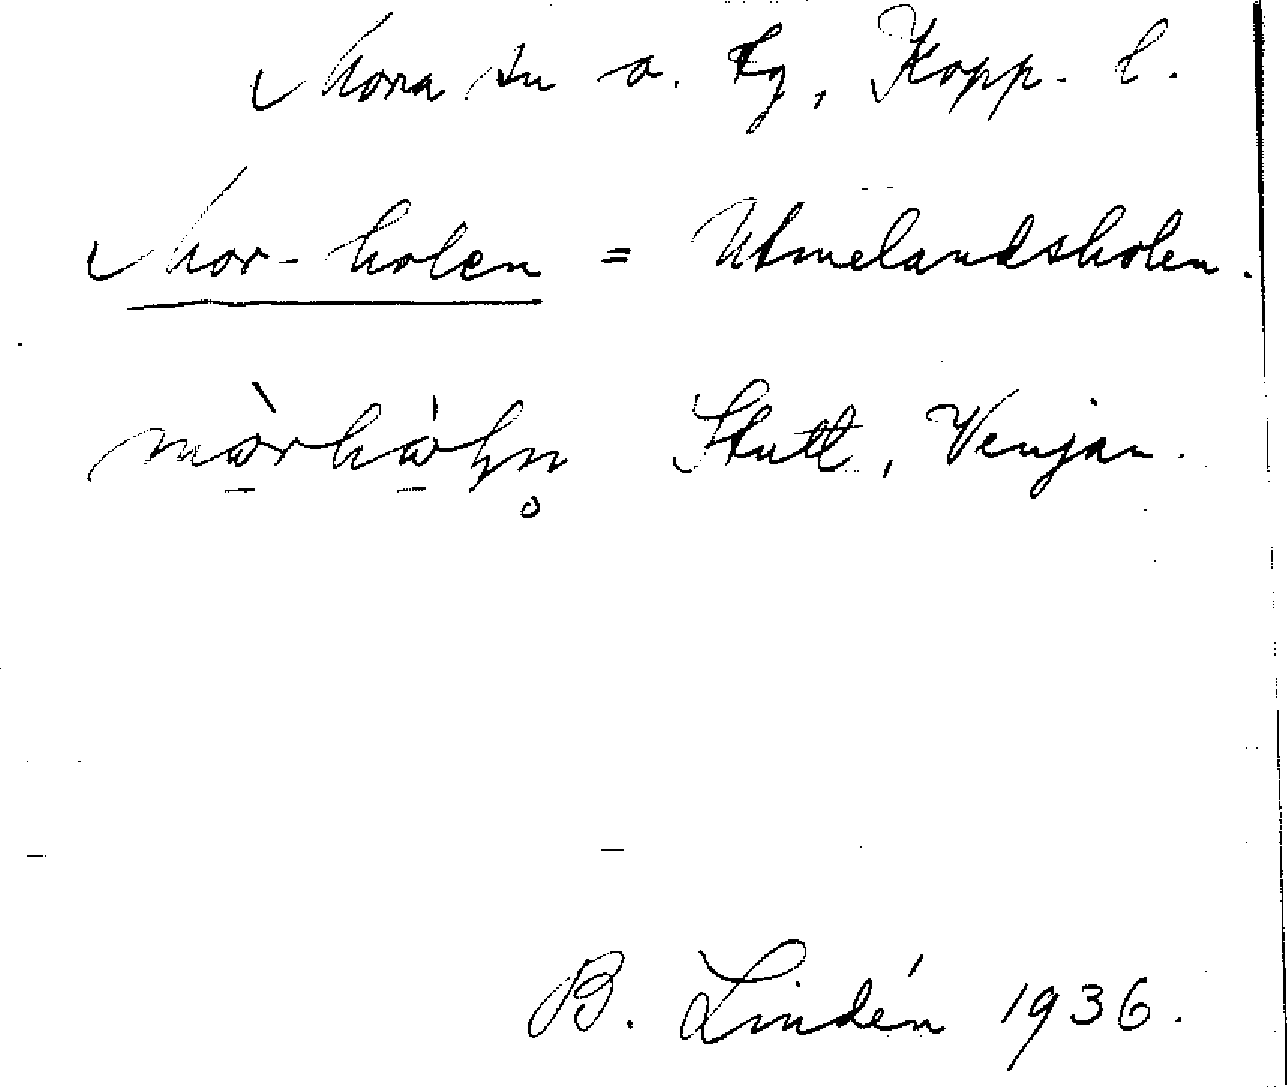 Mora sn o. tg, Kopp. l.
Mor-holen = Utmelandsholen.
Stutt, Venjan.
B. Lindén 1936.